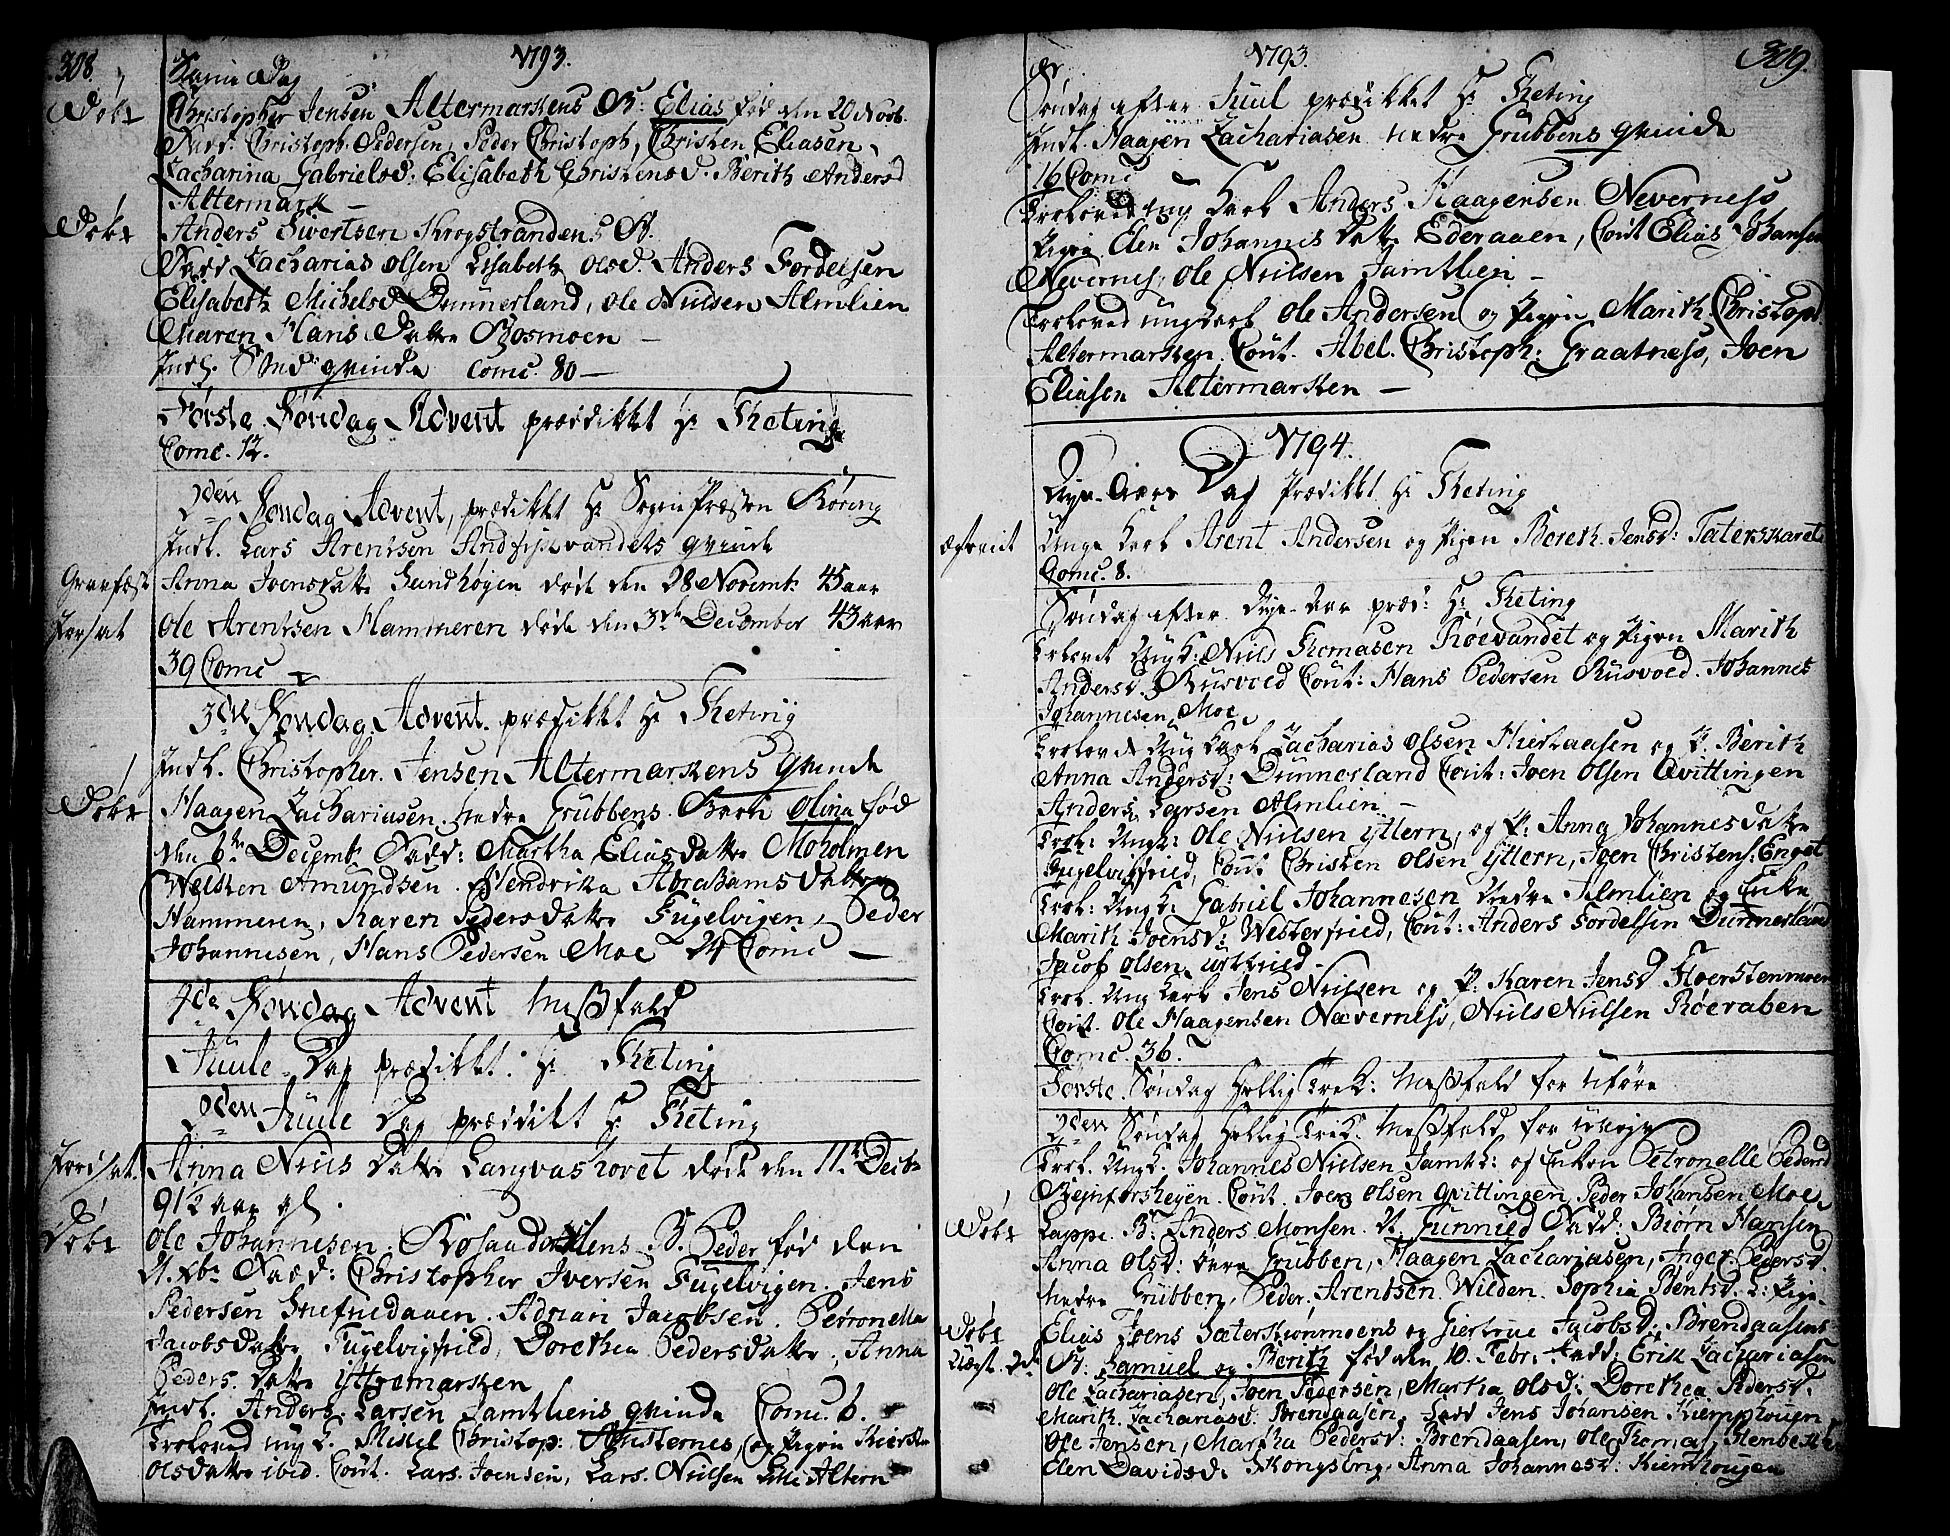 308
1793.
Samme Dag
Døbt
Christopher Jensen Altermarkens B: Elias fød den 20 Novb.
Fadd: Christoph. Pedersen, Peder Christoph, Christen Eliasen,
Zacharina Gabrielsd. Elisabeth Christensd. Berith Andersd
Altermark —
Døbt
Anders Sivertsen Krogstrandens B.
Fadd Zacharias Olsen Lisabeth Olsd. Anders Fordelsen
Elisabeth Michelsd Dunnerland, Ole Nielsen Almlien
Charen Hans Datter Bosmoen —
Indl. qvinde Comc. 80 —
Første Søndag Advent prædikket Hr Theting
Comc. 12.
2den Søndag Advent, prædikket Hr Sogne Præsten Røring
Indl. Lars Arentsen Andfischvandets qvinde
Gravfæst
Anna Joensdatter Sandhøgen døde den 28 Novembr. 45 aar
Jordsat
Ole Arentsen Hammeren døde den 3de December 43 aar
39 Comc
3die Søndag Advent. prædikket Hr Theting
Indl. Christopher Jensen Altermarkens qvinde
Døbt
Haagen Zachariasen nedre Grubbens Barn Olina fød
den 6te Decembr Fadd: Martha Eliasdatter Moholmen
Welsken Amundsen. Hendrika Abrahamsdatter
Hammeren, Karen Pedersdatter Fugelvigen, Peder
Johannesen, Hans Pedersen Moe 24 Comc —
4de Søndag Advent Messefald
Juule Dag prædikket. Hr Theting
2den Juule Dag prædikt Hr Theting
Jordsat.
Anna Niels Datter Langvashovet døde den 11te Decbr
91½ aar gl.
Døbt
Ole Johannesen B. Peder fød den
Xbr Fadd: Christopher Iversen Fugelvigen. Jens
Pedersen Snefieldaaen. Adrian Jacobsen. Petronella
Jacobsdatter Fugelvigfield, Dorethea Pedersdatter, Anna
Peders Datter Yttremarken
Indl. Anders Larsen Jamtliens qvinde Comc. 6.
Troloved ung K. Mikkel Christoph: og Pigen
Olsdatter ibid. Cout. Lars Joensen, Lars Nielsen Lille Altern
1793.
309.
Søndag efter Juul prædikket Hr Theting
Indl. Haagen Zachariasen nedre Grubbens qvinde
16 Comc
Trolovet ung Karl Anders Haagensen Neverness
Pigen Elen Johannis Datter Ederaaen, Cout Elias Johansen
Nevernes, Ole Nielsen Jamtlien —
Troloved ung Karl Ole Andersen og Pigen Marith Christoph.
Altermarken. Cout. Abel Christoph: Graatness, Joen
Eliasen Altermarken —
1794.
Nye-Aars Dag Prædikket Hr Theting
Ægteviet
Unge Karl Arent Andersen og Pigen Bereth Jensd: Taterskaret
Comc. 8.
Søndag efter Nye-Aar præd: Hr Theting
Trolovet Ung K: Niels Thomasen Røevandet og Pigen Marith
Andersd. Rusvold Cout: Hans Pedersen Rusvold. Johannes
Johannesen Moe
Trolovet Ung Karl Zacharias Olsen Hiertaasen og P. Berith
Anna Andersd: Dunnerland Cout: Joen Olsen Qvittingen
Anders Larsen Almlien —
Trol: Ung K: Ole Nielsen Yttern, og P: Anna Johannesdatter
Fugelvigfield, Cout Christen Olsen Yttern, Joen Christens: Enget
Trol: Ung K: Gabriel Johannesen Nedre Almlien og Enke
Marith Joensd: Westerfield, Cout: Anders Fordelsen Dunnerland
Jacob Olsen
Trol. Ung Karl Jens Nielsen og P: Karen Jensd
Cout. Ole Haagensen Næverness, Niels Nielsen Røeraben
Comc. 36.
Første Søndag Hellig Trek: Messefald for Uføre
2den Søndag Hellig Trek: Messefald for
Trol. Ung K. Johannes Nielsen Jamtl: og Enken Petronelle Pedersd
Cout. Joen Olsen Qvittingen Peder Johansen Moe
Døbt
Lappe B: Anders Monsen. N. Gunnild Fadd: Biørn Hansen
Anna Olsd: øvre Grubben, Haagen Zachariasen, Inger Pedersd.
Nedre Grubben, Peder Arentsen Wilden. Sophia Bentsd. L: Pige
Døbt
Elias Joens Sæterstrommoens og Giertrue Jacobsd: Brendaasens
B: Samuel og Berith fød den 10 Febr. Fadd: Erik Zachariasen
Ole Zachariasen, Joen Pedersen, Martha Olsd: Dorethea Pedersd.
Marith Zachariasd. Brendaasen, Fadd Jens Johansen Kiemphougen
Ole Jensen, Martha Pedersd: Brendaasen, Ole Thomas:
Elen Davidsd. Skongseng. Anna Johannesd: Kiemhougen